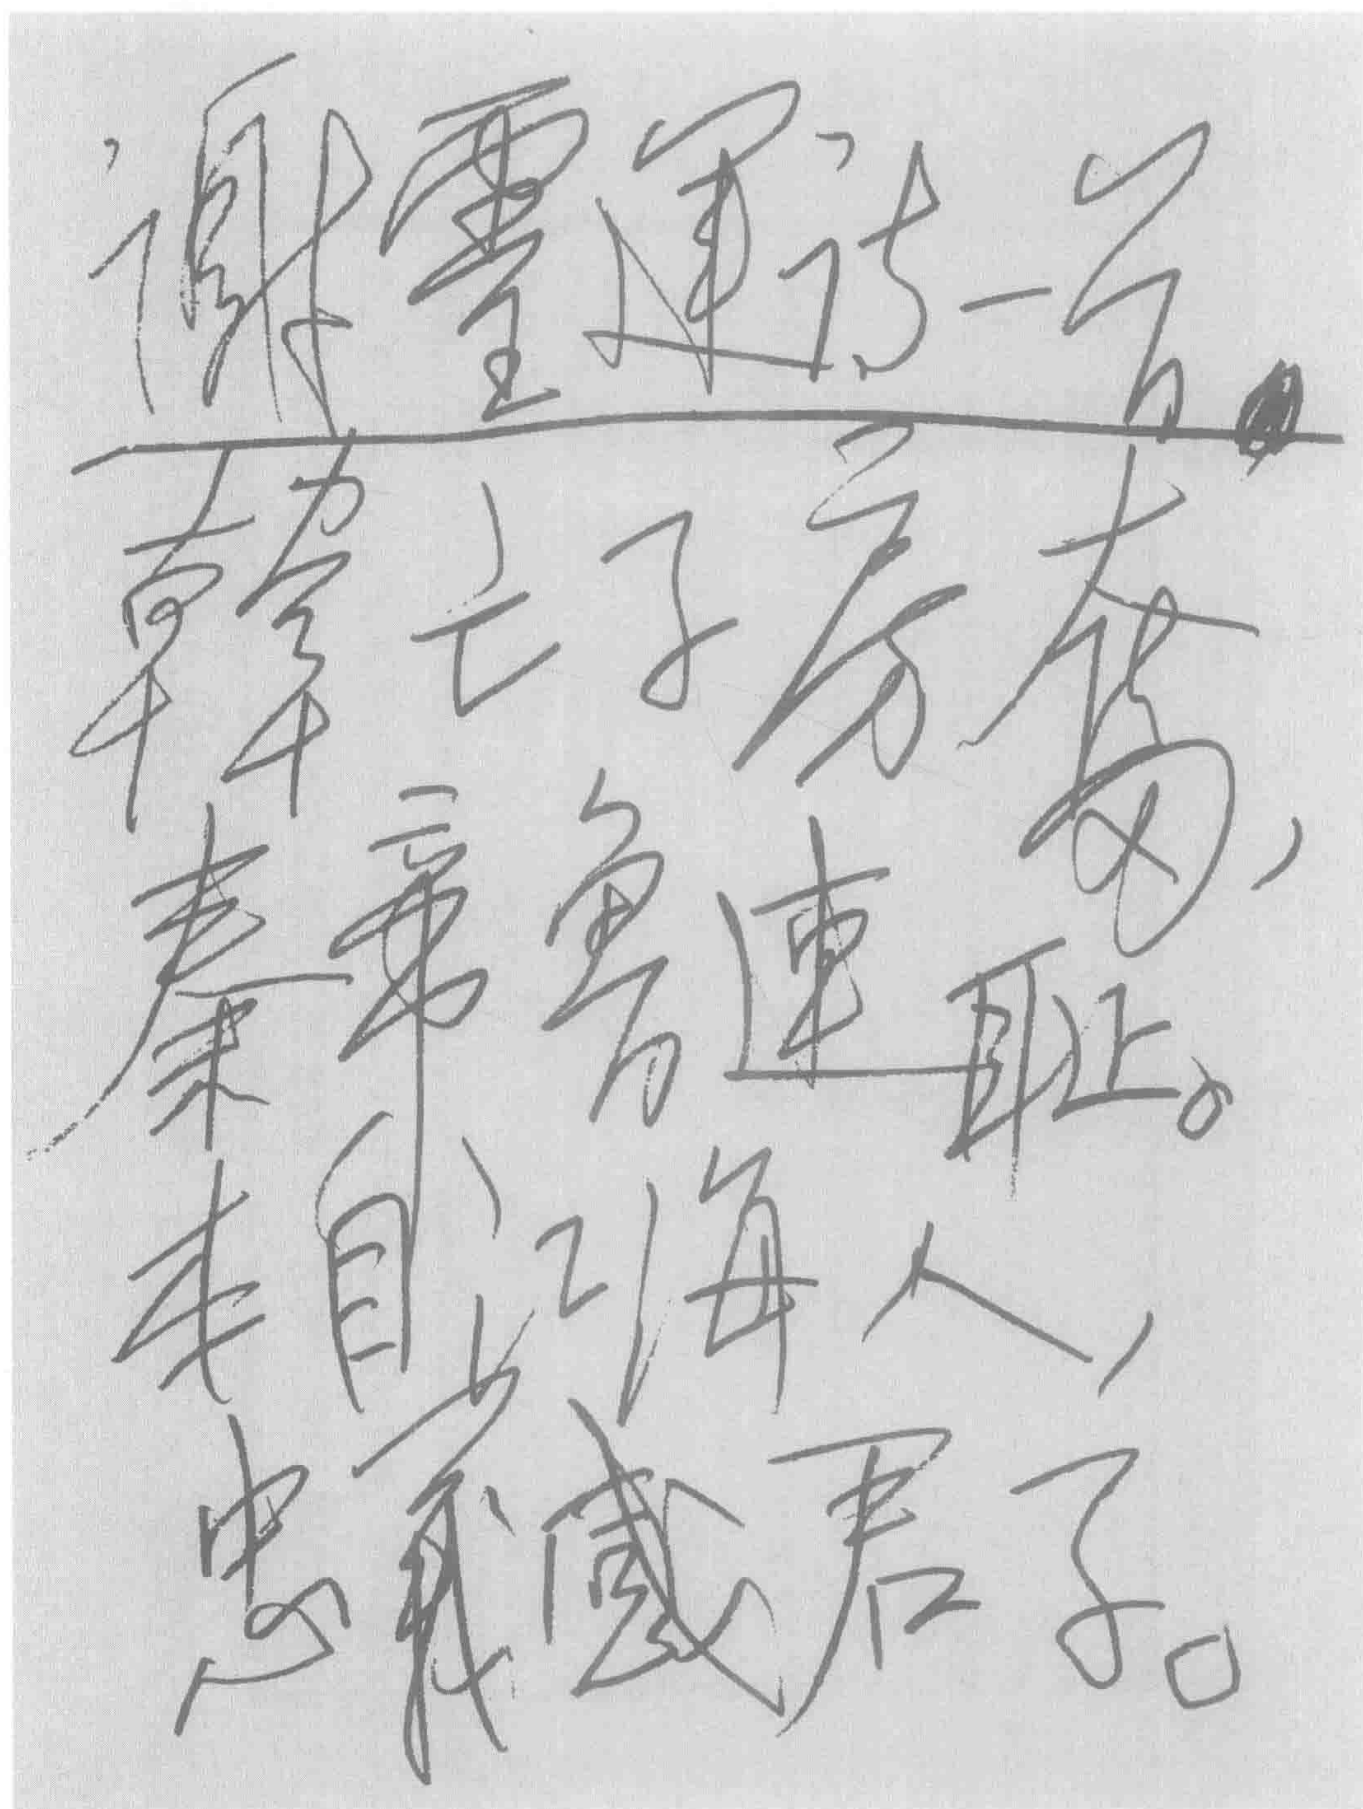 謝靈運詩一首。
韓亡子房奮，
秦帝魯連耻。
本自江海人，
忠義感君子。